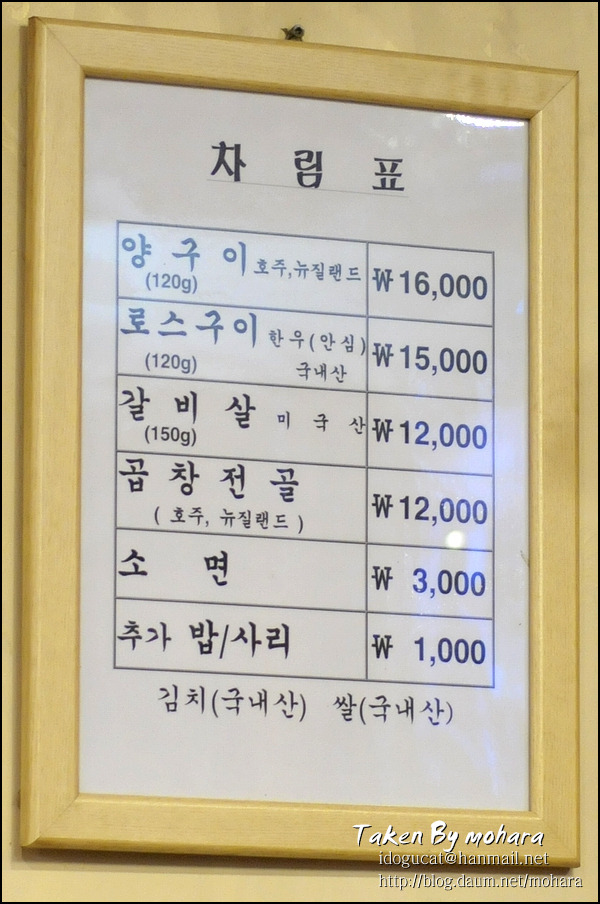 차 림 표
양 구 이 호주,뉴질랜드 ₩16,000
(120g)
로스구이 한우(안심) ₩15,000
(120g) 국내산
갈 비 살 미 국 산 ₩12,000
(150g)
곱 창 전 골 ₩12,000
( 호주, 뉴질랜드 )
소 면 ₩ 3,000
추가 밥/사리 ₩ 1,000
김치(국내산) 쌀(국내산)
Taken By mohara
idogucat@hanmail.net
http://blog.daum.net/mohara